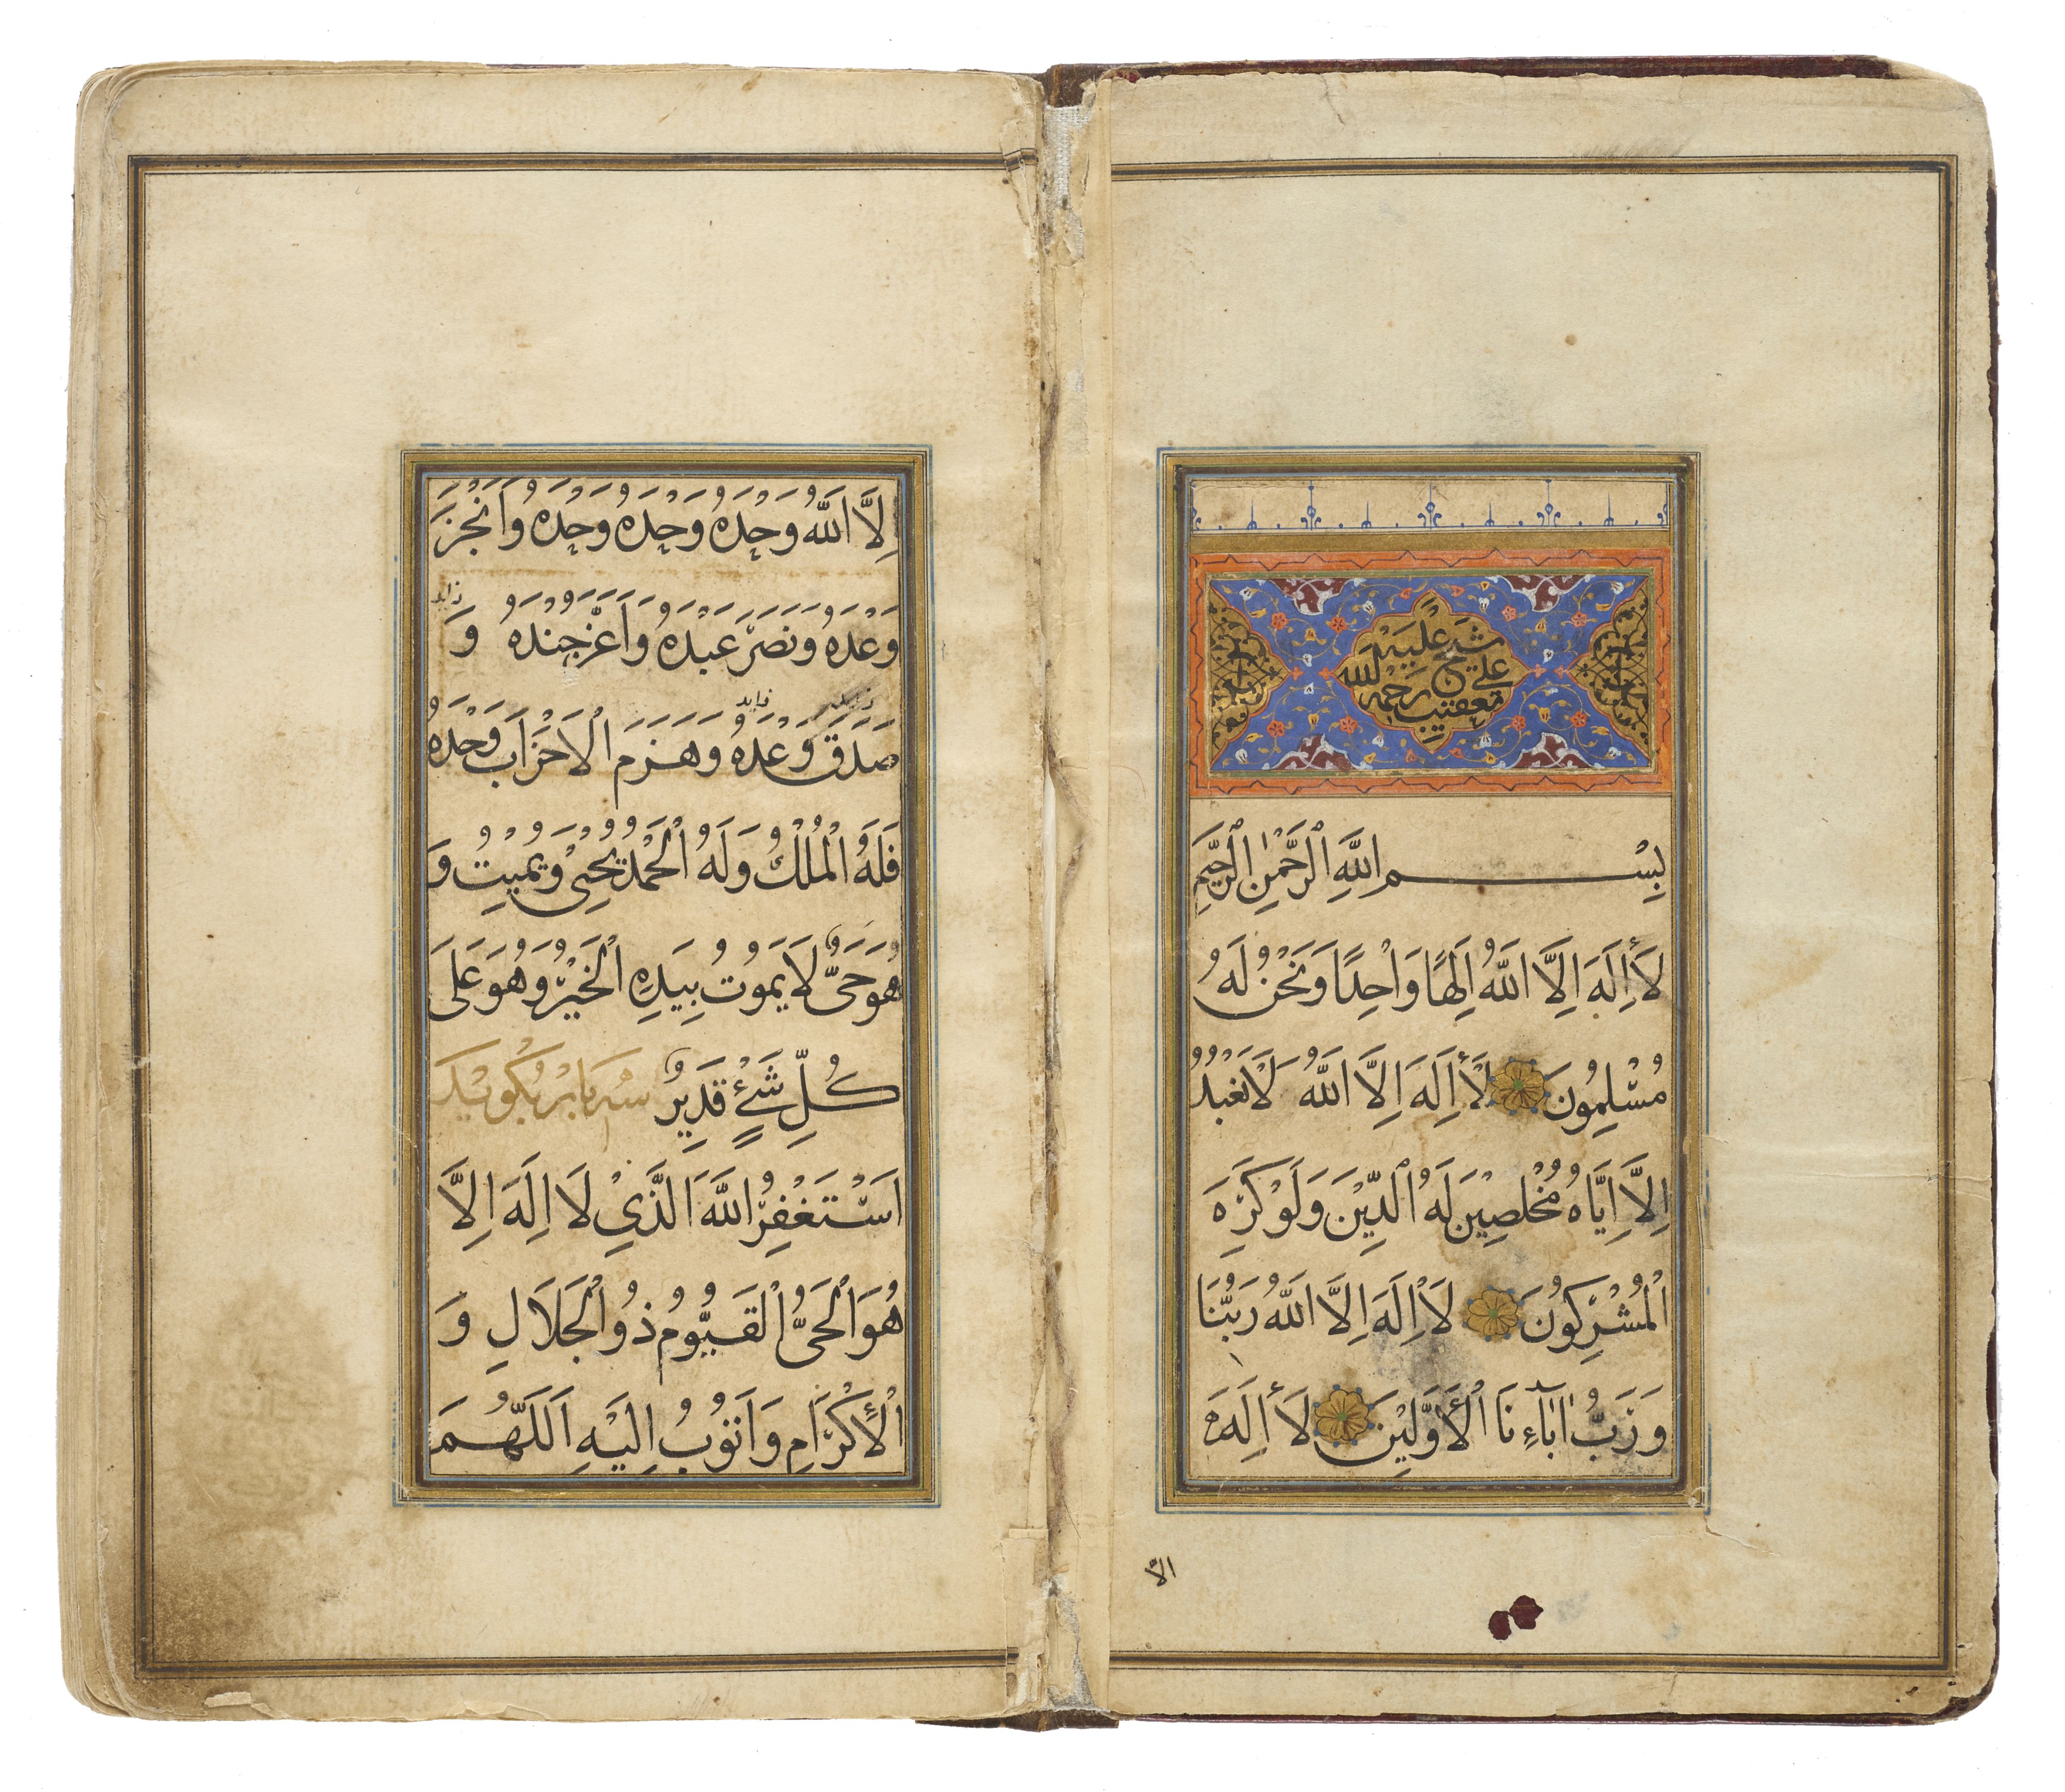 بِسْمِ اللَّهِ الرَّحْمٰنِ الرَّحِيمِ
لَا إِلَهَ اِلَّا اللَّهُ اِلَهًا وَاحِدًا وَنَحْنُ لَهُ
مُسْلِمُونَ لَا إِلَهَ اِلَّا اللَّهُ لَا نَعْبُدُ
اِلَّا اِيَّاهُ مُخْلِصِيْنَ لَهُ الدِّيْنَ وَلَوْ كَرِهَ
الْمُشْرِكُونَ لَا اِلَهَ اِلَّا اللَّهُ رَبُّنَا
وَرَبُّ اٰبَآءِنَا الْأَوَّلِينَ لَا إِلَهَ
الا
اِلَّا اللَّهُ وَحْدَهُ وَحْدَهُ وَحْدَهُ وَاَنْجَزَ
وَعْدَهُ وَنَصَرَ عَبْدَهُ وَاَعَزَّ جُنْدَهُ وَ
صَدَقَ وَعْدَهُ وَهَزَمَ الْاَحْزَابَ وَحْدَهُ
فَلَهُ الْمُلْكُ وَلَهُ الْحَمْدُ يُحْيِىْ وَيُمِيْتُ وَ
هُوَ حَىٌّ لَا يَمُوْتُ بِيَدِهِ الْخَيْرُ وَهُوَ عَلَى
كُلِّ شَىْءٍ قَدِيْرٌ سه بار بكويد
اَسْتَغْفِرُ اللَّهَ الَّذِيْ لَا اِلَهَ اِلَّا
هُوَ الْحَىُّ الْقَيُّوْمُ ذُو الْجَلَالِ وَ
الْاِكْرَامِ وَاَتُوْبُ اِلَيْهِ اَللَّهُمَّ